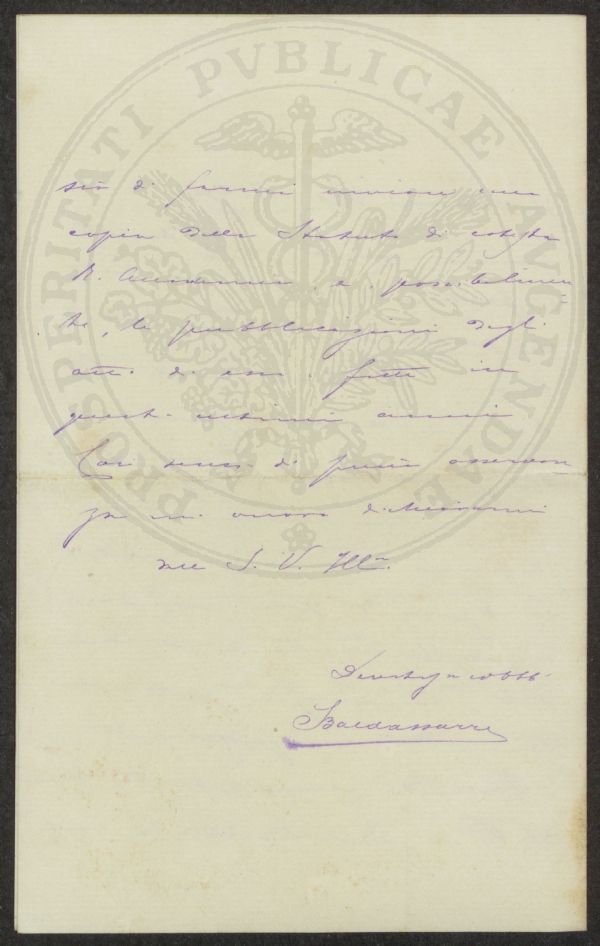 PROSPERITATI PVBLICAE AVGENDAE
di farmi inviare una
copia dello Statuto di cotesta
R. Accademia e, possibilmen=
te, le pubblicazioni degli
atti di essa fatte in
questi ultimi anni
Coi sensi di osservan
za mi onoro dichiararmi
S. V. Ill.
Baldassarre